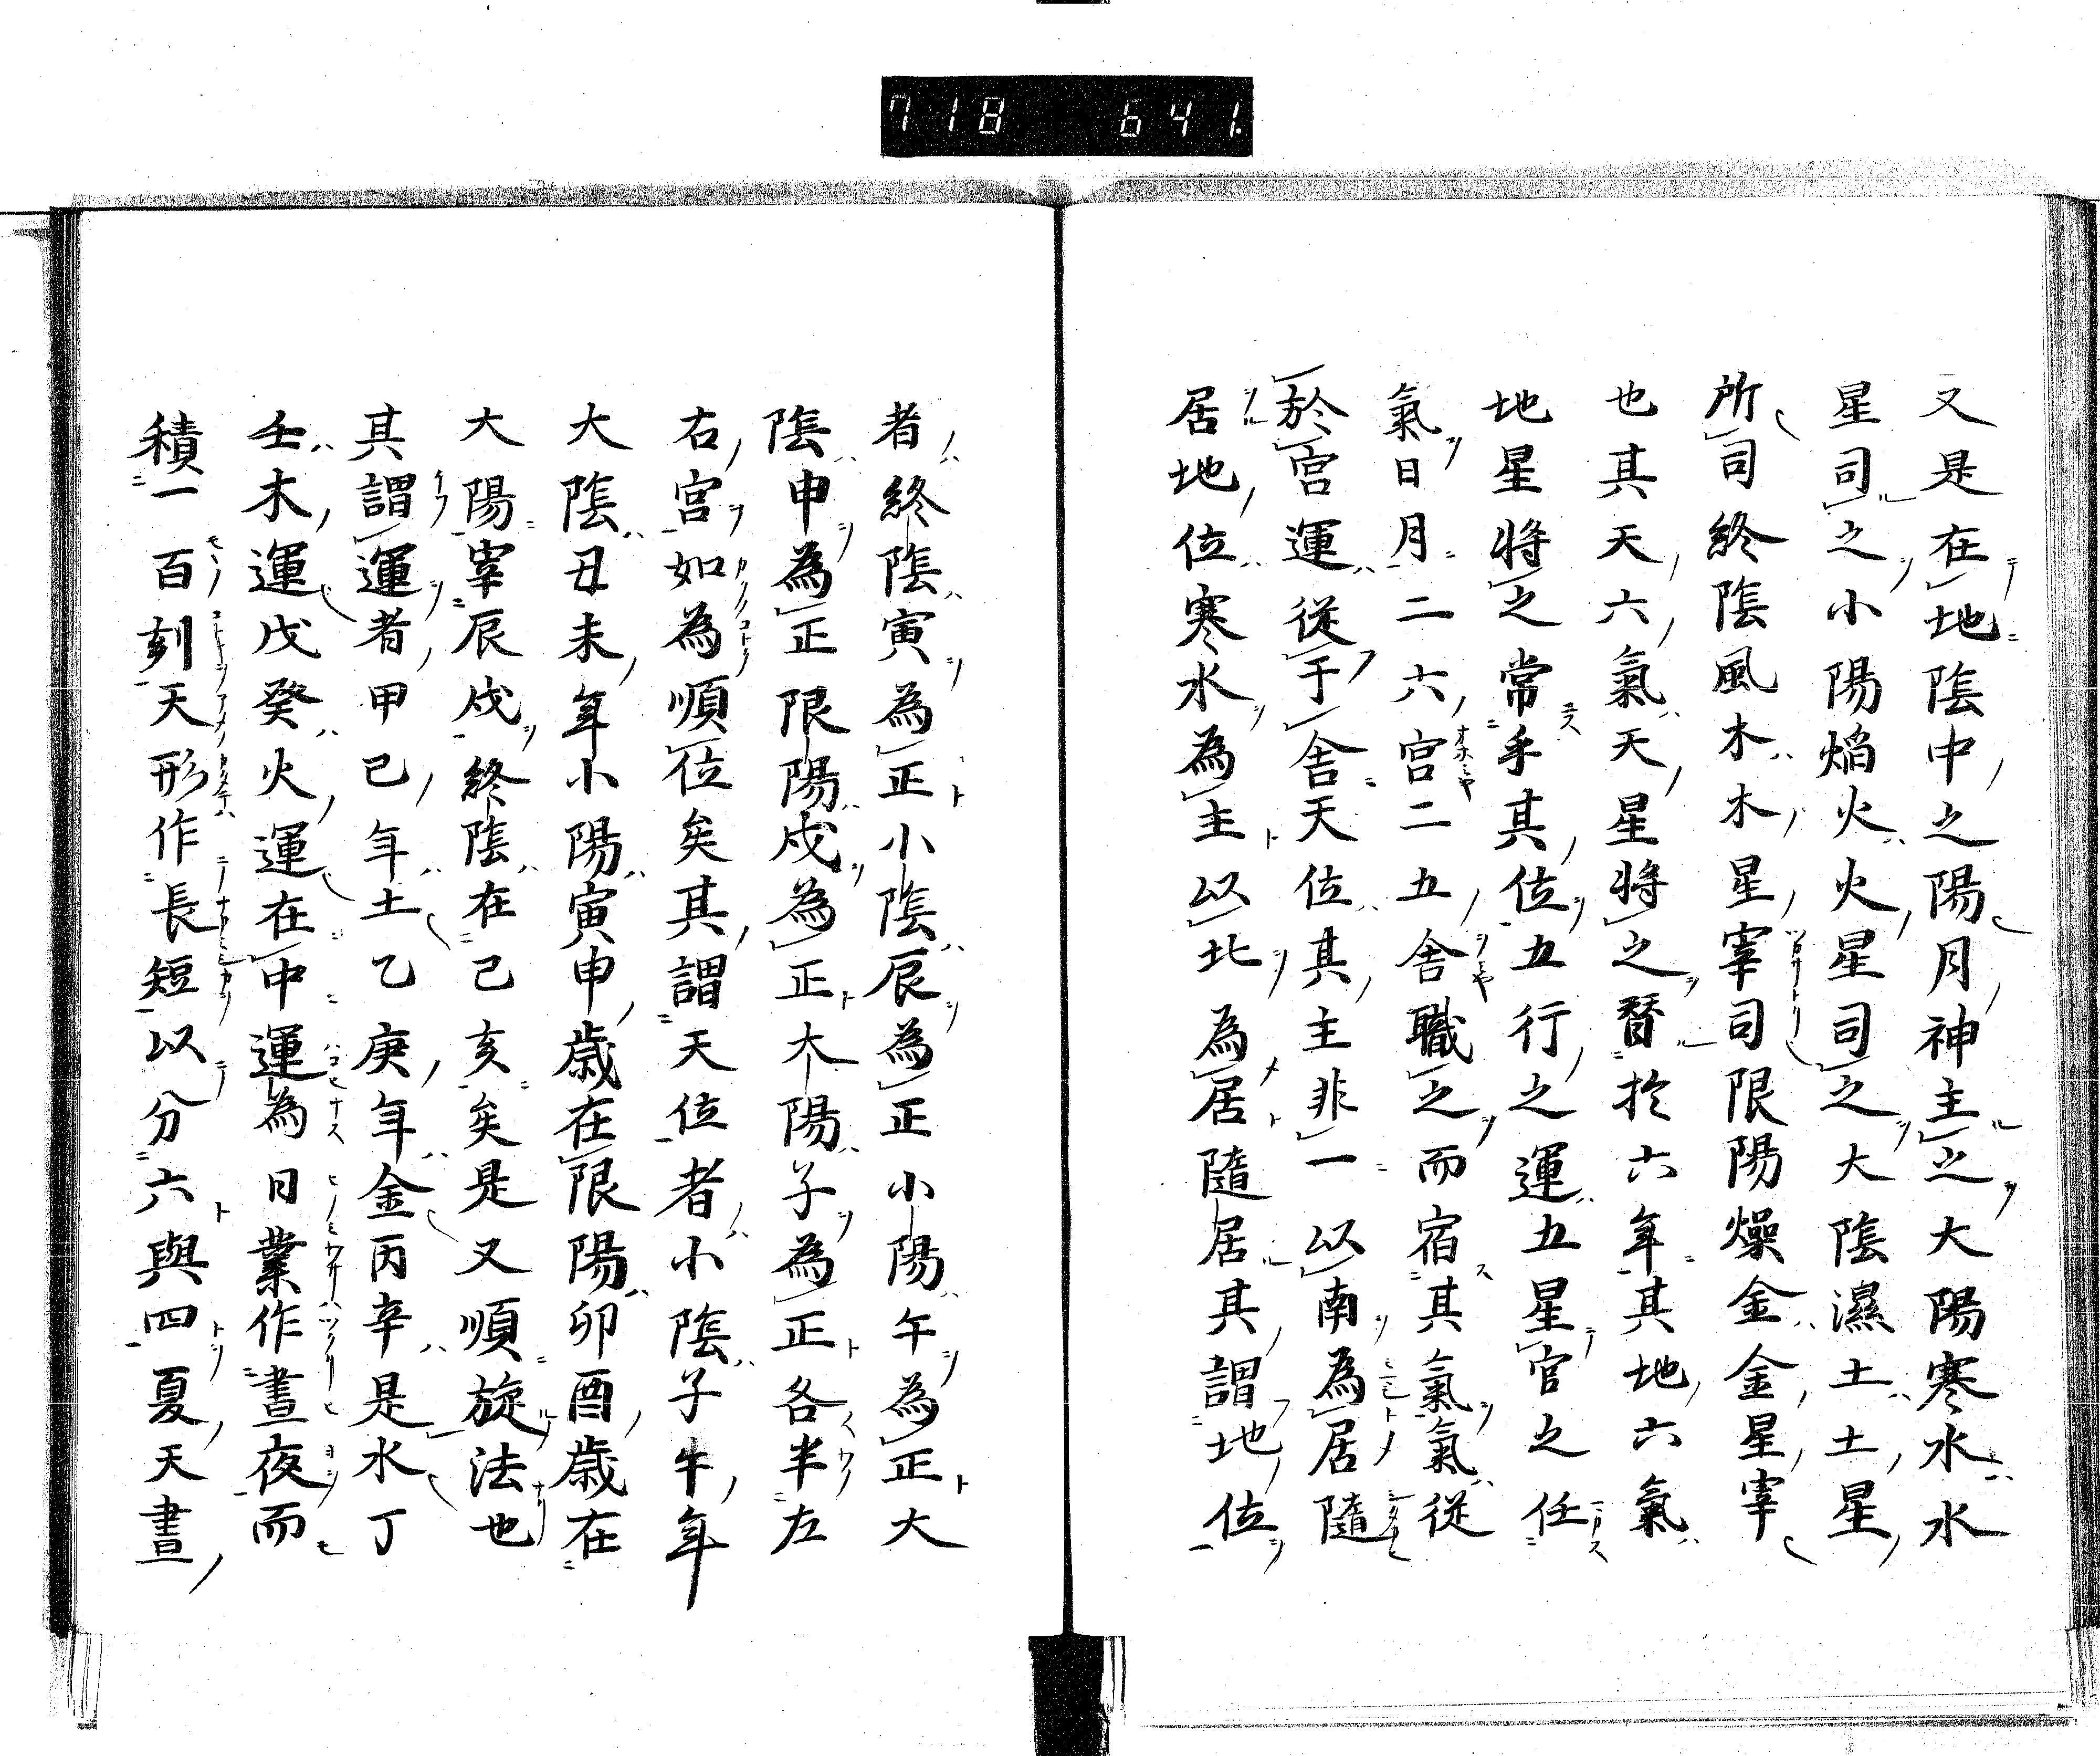 718 641.
又是在地陰中之陽月神主之大陽寒水水
星司之小陽焔火火星司之大陰濕土土星
所司終陰風木木星宰司限陽燥金金星宰
也其天六氣天星將之替於六年其地六氣
地星將之常乎其位五行之運五星官之任
氣日月二六宮二五舎職之而宿其氣氣從
於宮運從于舎天位其主非一以南為居隨
居地位寒水為主以北為居隨居其謂地位
者終陰寅為正小陰辰為正小陽午為正大
陰申為正限陽戌為正大陽子為正各半左
右宮如為順位矣其謂天位者小陰子午年
大陰丑未年小陽寅申歳在限陽卯酉歳在
大陽宰辰戌終陰在己亥矣是又順旋法也
其謂運者甲己年土乙庚年金丙辛是水丁
壬木運戊癸火運在中運為日業作晝夜而
積一百刻天形作長短以分六與四夏天晝